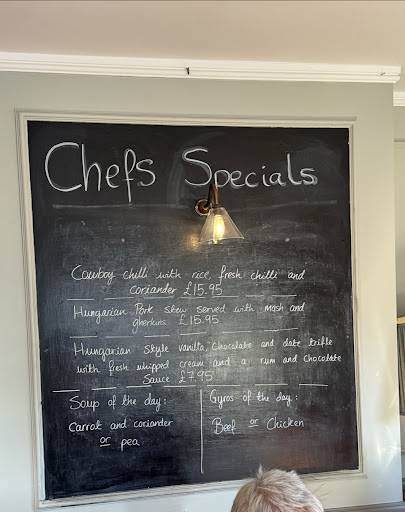 Chefs Specials
Cowboy chilli with rice, fresh chilli and
coriander £15.95
Hungarian Pork stew served with mash and
gherkins £15.95
Hungarian style vanilla, chocolate and date trifle
with fresh whipped cream and a rum and chocolate
sauce £7.95
Soup of the day:
Carrot and coriander
or pea
Gyros of the day:
Beef or Chicken